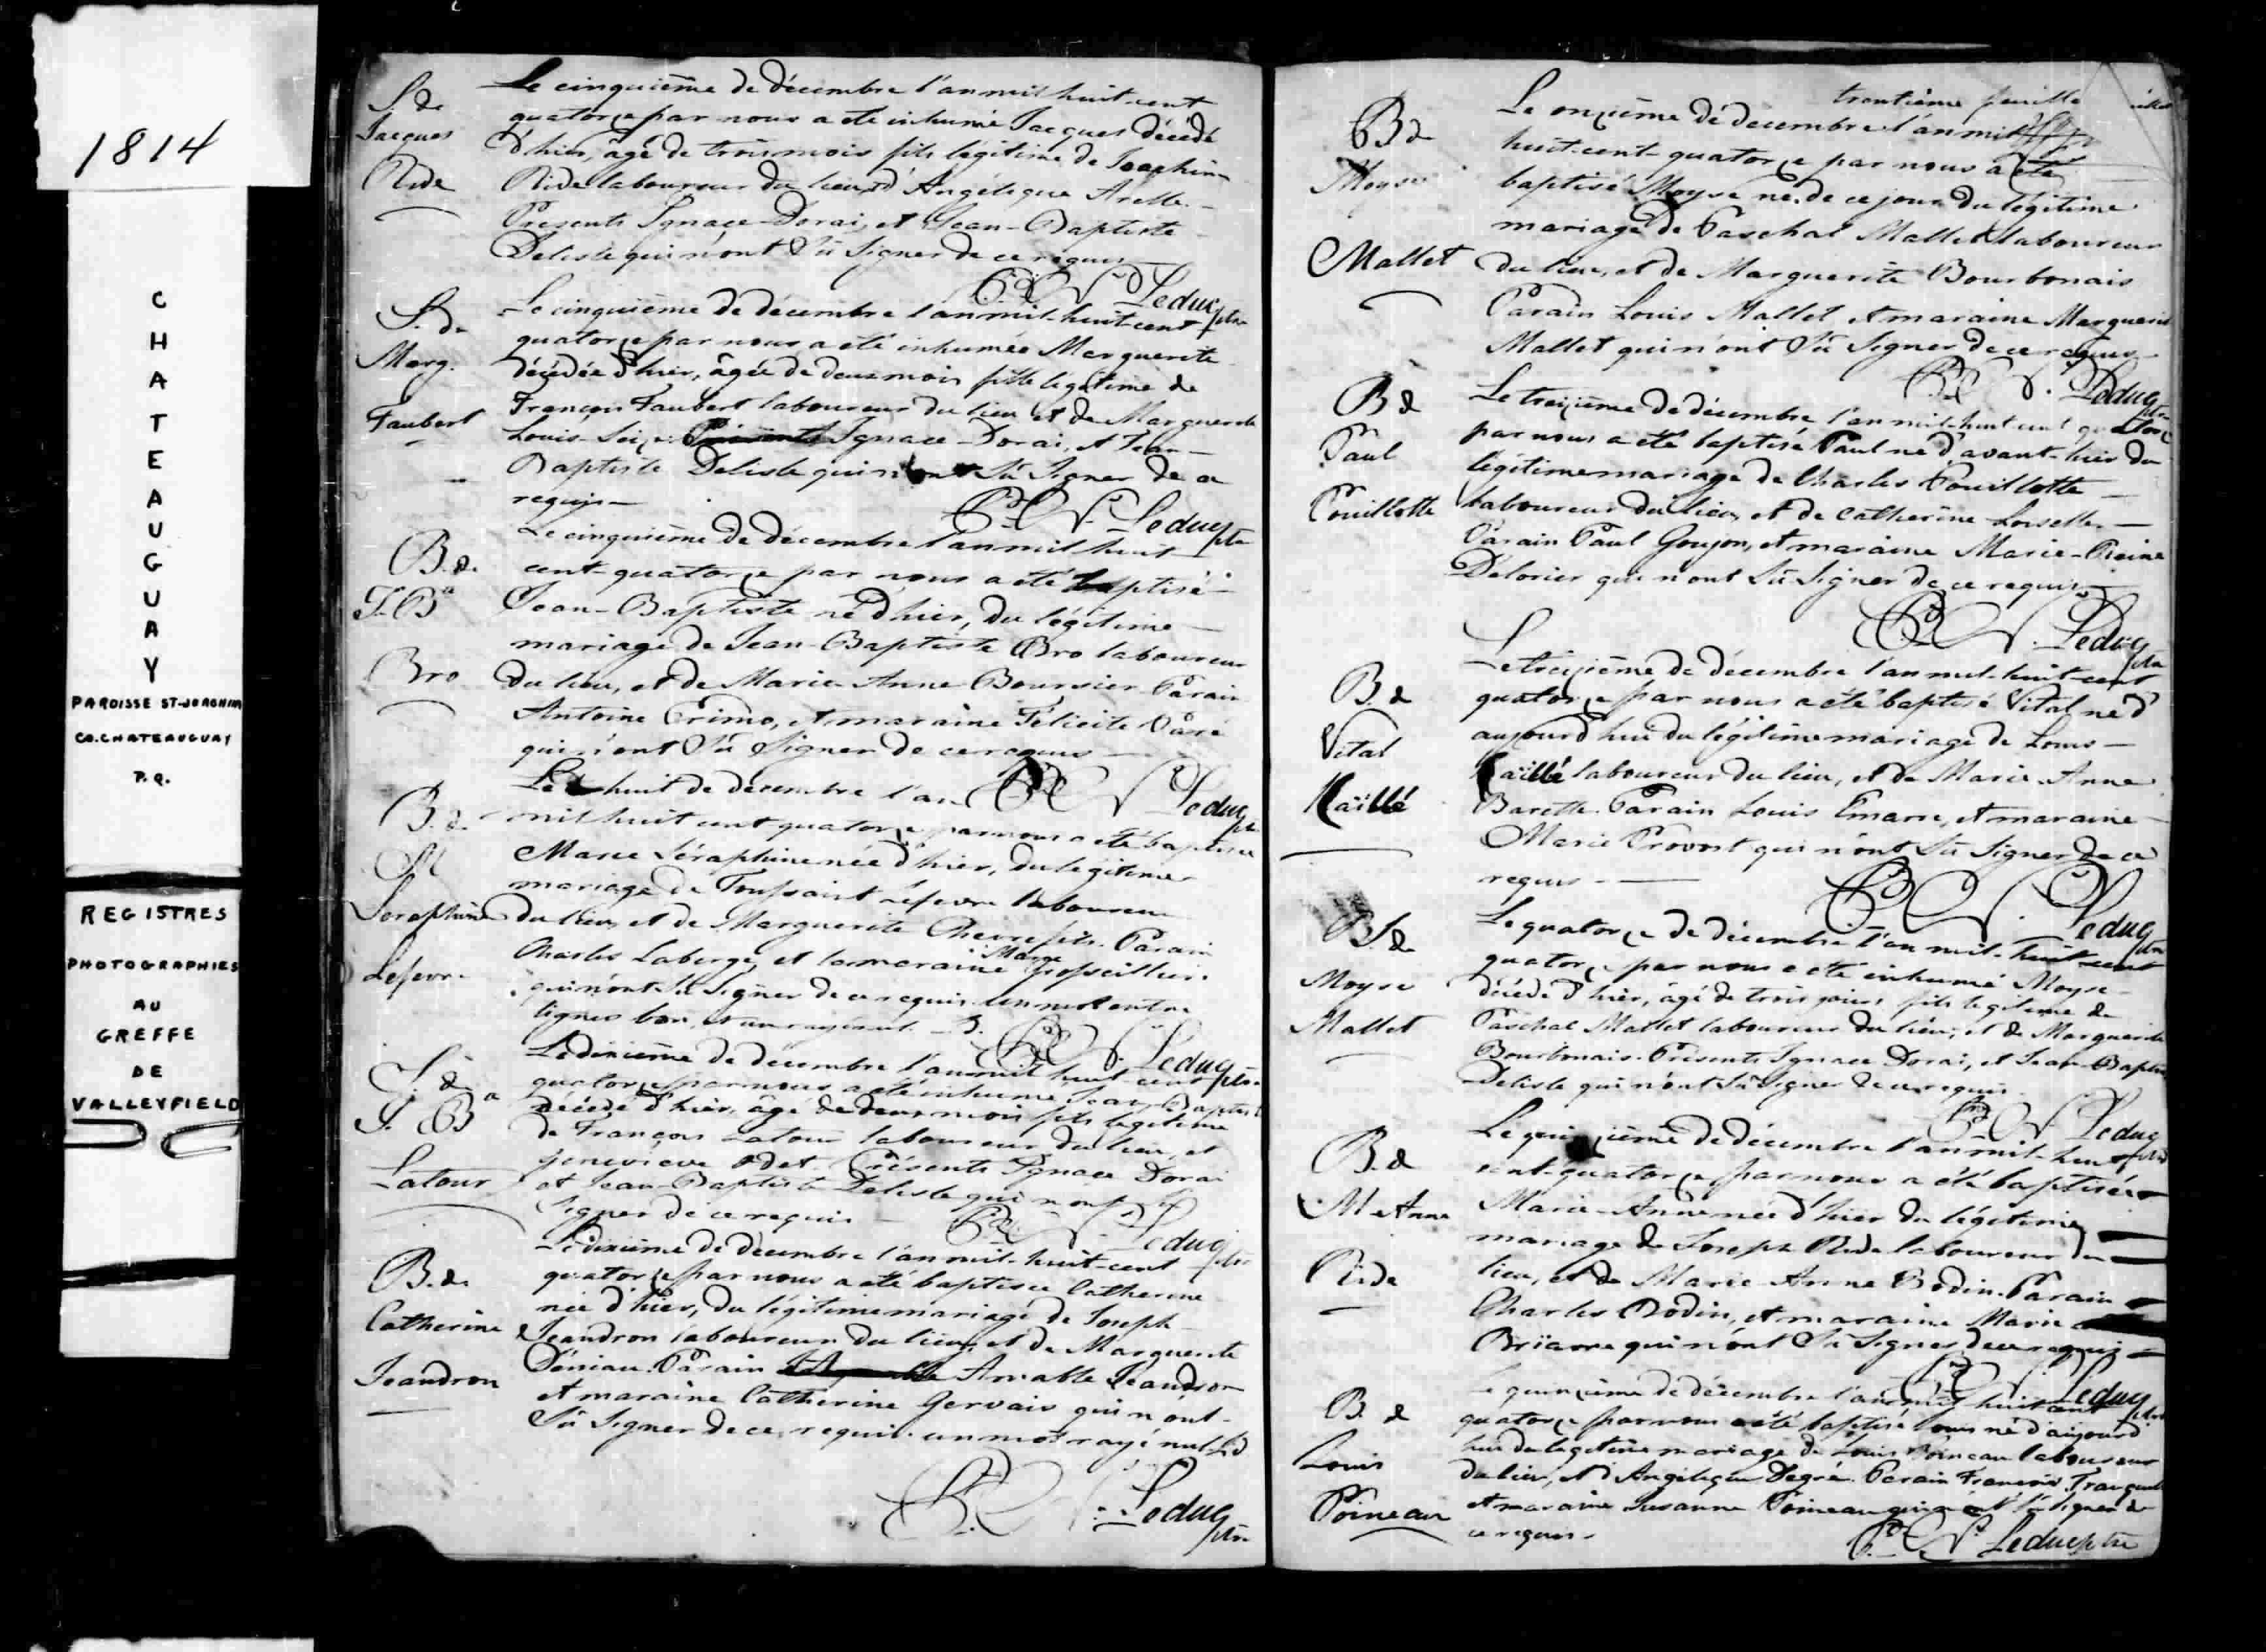 1814
CHATEAUGUAY
PAROISSE ST-JOACHIM
CO. CHATEAUGUAY
P.Q.
REGISTRES
PHOTOGRAPHIES
AU
GREFFE
DE
VALLEYFIELD
S. de
Jacques
Ride
Le cinquième de décembre l'an mil huit-cent
quatorze par nous a été inhumé Jacques décédé
d'hier, âgé de trois mois fils légitime de Joachim
Ride laboureur du lieu, et d'Angélique Arelle.
Présents Ignace Dorai, et Jean-Baptiste
Delisle qui n'ont sû signer de ce requis
Leduc ptre
S. de
Marg.
Faubert
Le cinquième de décembre l'an mil-huit-cent
quatorze par nous a été inhumée Marguerite
décédée d'hier, âgée de deux mois fille légitime de
François Faubert laboureur du lieu et de Marguerite
Louis-Seize. Présents Ignace Dorai, et Jean-
Baptiste Delisle qui n'ont sû signer de ce
requis
Leduc ptre
B. de
J. Bte
Bro
Le cinquième de décembre l'an mil huit
cent-quatorze par nous a été baptisé
Jean-Baptiste né d'hier, du légitime
mariage de Jean-Baptiste Bro laboureur
du lieu, et de Marie Anne Boursier. Parain
Antoine Primo, et maraine Félicité Paré
qui n'ont sû signer de ce requis
Leduc ptre
B. de
M
Séraphine
Lefevre
Le huit de décembre l'an
mil huit cent quatorze par nous a été baptisée
Marie Séraphine née d'hier, du légitime
mariage de Toussaint Lefevre laboureur
du lieu, et de Marguerite Chevrefils. Parain
Charles Laberge, et la maraine Marie Grosseillier
qui n'ont sû signer de ce requis un mot entre
lignes bon, et un rayé nul.
Leduc ptre
S. de
J. Bte
Latour
Le dixième de décembre l'an mil huit-cent
quatorze par nous a été inhumé Jean Baptiste
décédé d'hier, âgé de deux mois fils légitime
de François Latour laboureur du lieu, et
Geneviève Odet. Présents Ignace Dorai
et Jean-Baptiste Delisle qui n'ont sû
signer de ce requis
Leduc ptre
B. de
Catherine
Jeandron
Le dixième de décembre l'an mil-huit-cent
quatorze par nous a été baptisée Catherine
née d'hier, du légitime mariage de Joseph
Jeandron laboureur du lieu, et de Marguerite
Péniau. Parain Amable Jeandron
et maraine Catherine Gervais qui n'ont
sû signer de ce requis. un mot rayé nul
Leduc ptre
trentième feuille
B de
Moyse
Mallet
Le onzième de decembre l'an mil
huit-cent-quatorze par nous a été
baptisé Moyse né de ce jour du légitime
mariage de Paschal Mallet laboureur
du lieu, et de Marguerite Bourbonais
Parain Louis Mallet et maraine Marguerite
Mallet qui n'ont sû signer de ce requis
Leduc ptre
B de
Paul
Pouillotte
Le treizième de décembre l'an mil-huit cent quatorze
par nous a été baptisé Paul né d'avant-hier du
légitime mariage de Charles Pouillotte
laboureur du lieu, et de Catherine Loiselle.
Parain Paul Goujon, et maraine Marie-Reine
Délorier qui n'ont sû signer de ce requis
Leduc ptre
B. de
Vital
Kaïllé
Le treizième de décembre l'an mil-huit-cent
quatorze par nous a été baptisé Vital né d'
aujourd'hui du légitime mariage de Louis
Kaïllé laboureur du lieu, et de Marie-Anne
Barette. Parain Louis Emare, et maraine
Marie Provost qui n'ont sû signer de ce
requis
Leduc ptre
S de
Moyse
Mallet
Le quatorze de décembre l'an mil-huit-cent
quatorze par nous a été inhumé Moyse
décédé d'hier, âgé de trois jours fils légitime de
Paschal Mallet laboureur du lieu, et de Marguerite
Bourbonais. Présents Ignace Dorai, et Jean-Baptiste
Delisle qui n'ont sû signer de ce requis.
Leduc ptre
B. de
M. Anne
Ride
Le quinzième de décembre l'an mil-huit
cent-quatorze par nous a été baptisée
Marie-Anne née d'hier du légitime
mariage de Joseph Ride laboureur du
lieu, et de Marie-Anne Bodin. Parain
Charles Bodin, et maraine Marie
Briarre qui n'ont sû signer de ce requis
Leduc ptre
B. de
Louis
Poineau
Le quinzième de décembre l'an mil huit cent
quatorze par nous a été baptisé Louis né d'aujourd'
hui du légitime mariage de Louis Poineau laboureur
du lieu, et d'Angélique Degré. Parain François
et maraine Susanne Poineau qui n'ont sû signer de
ce requis.
Leduc ptre